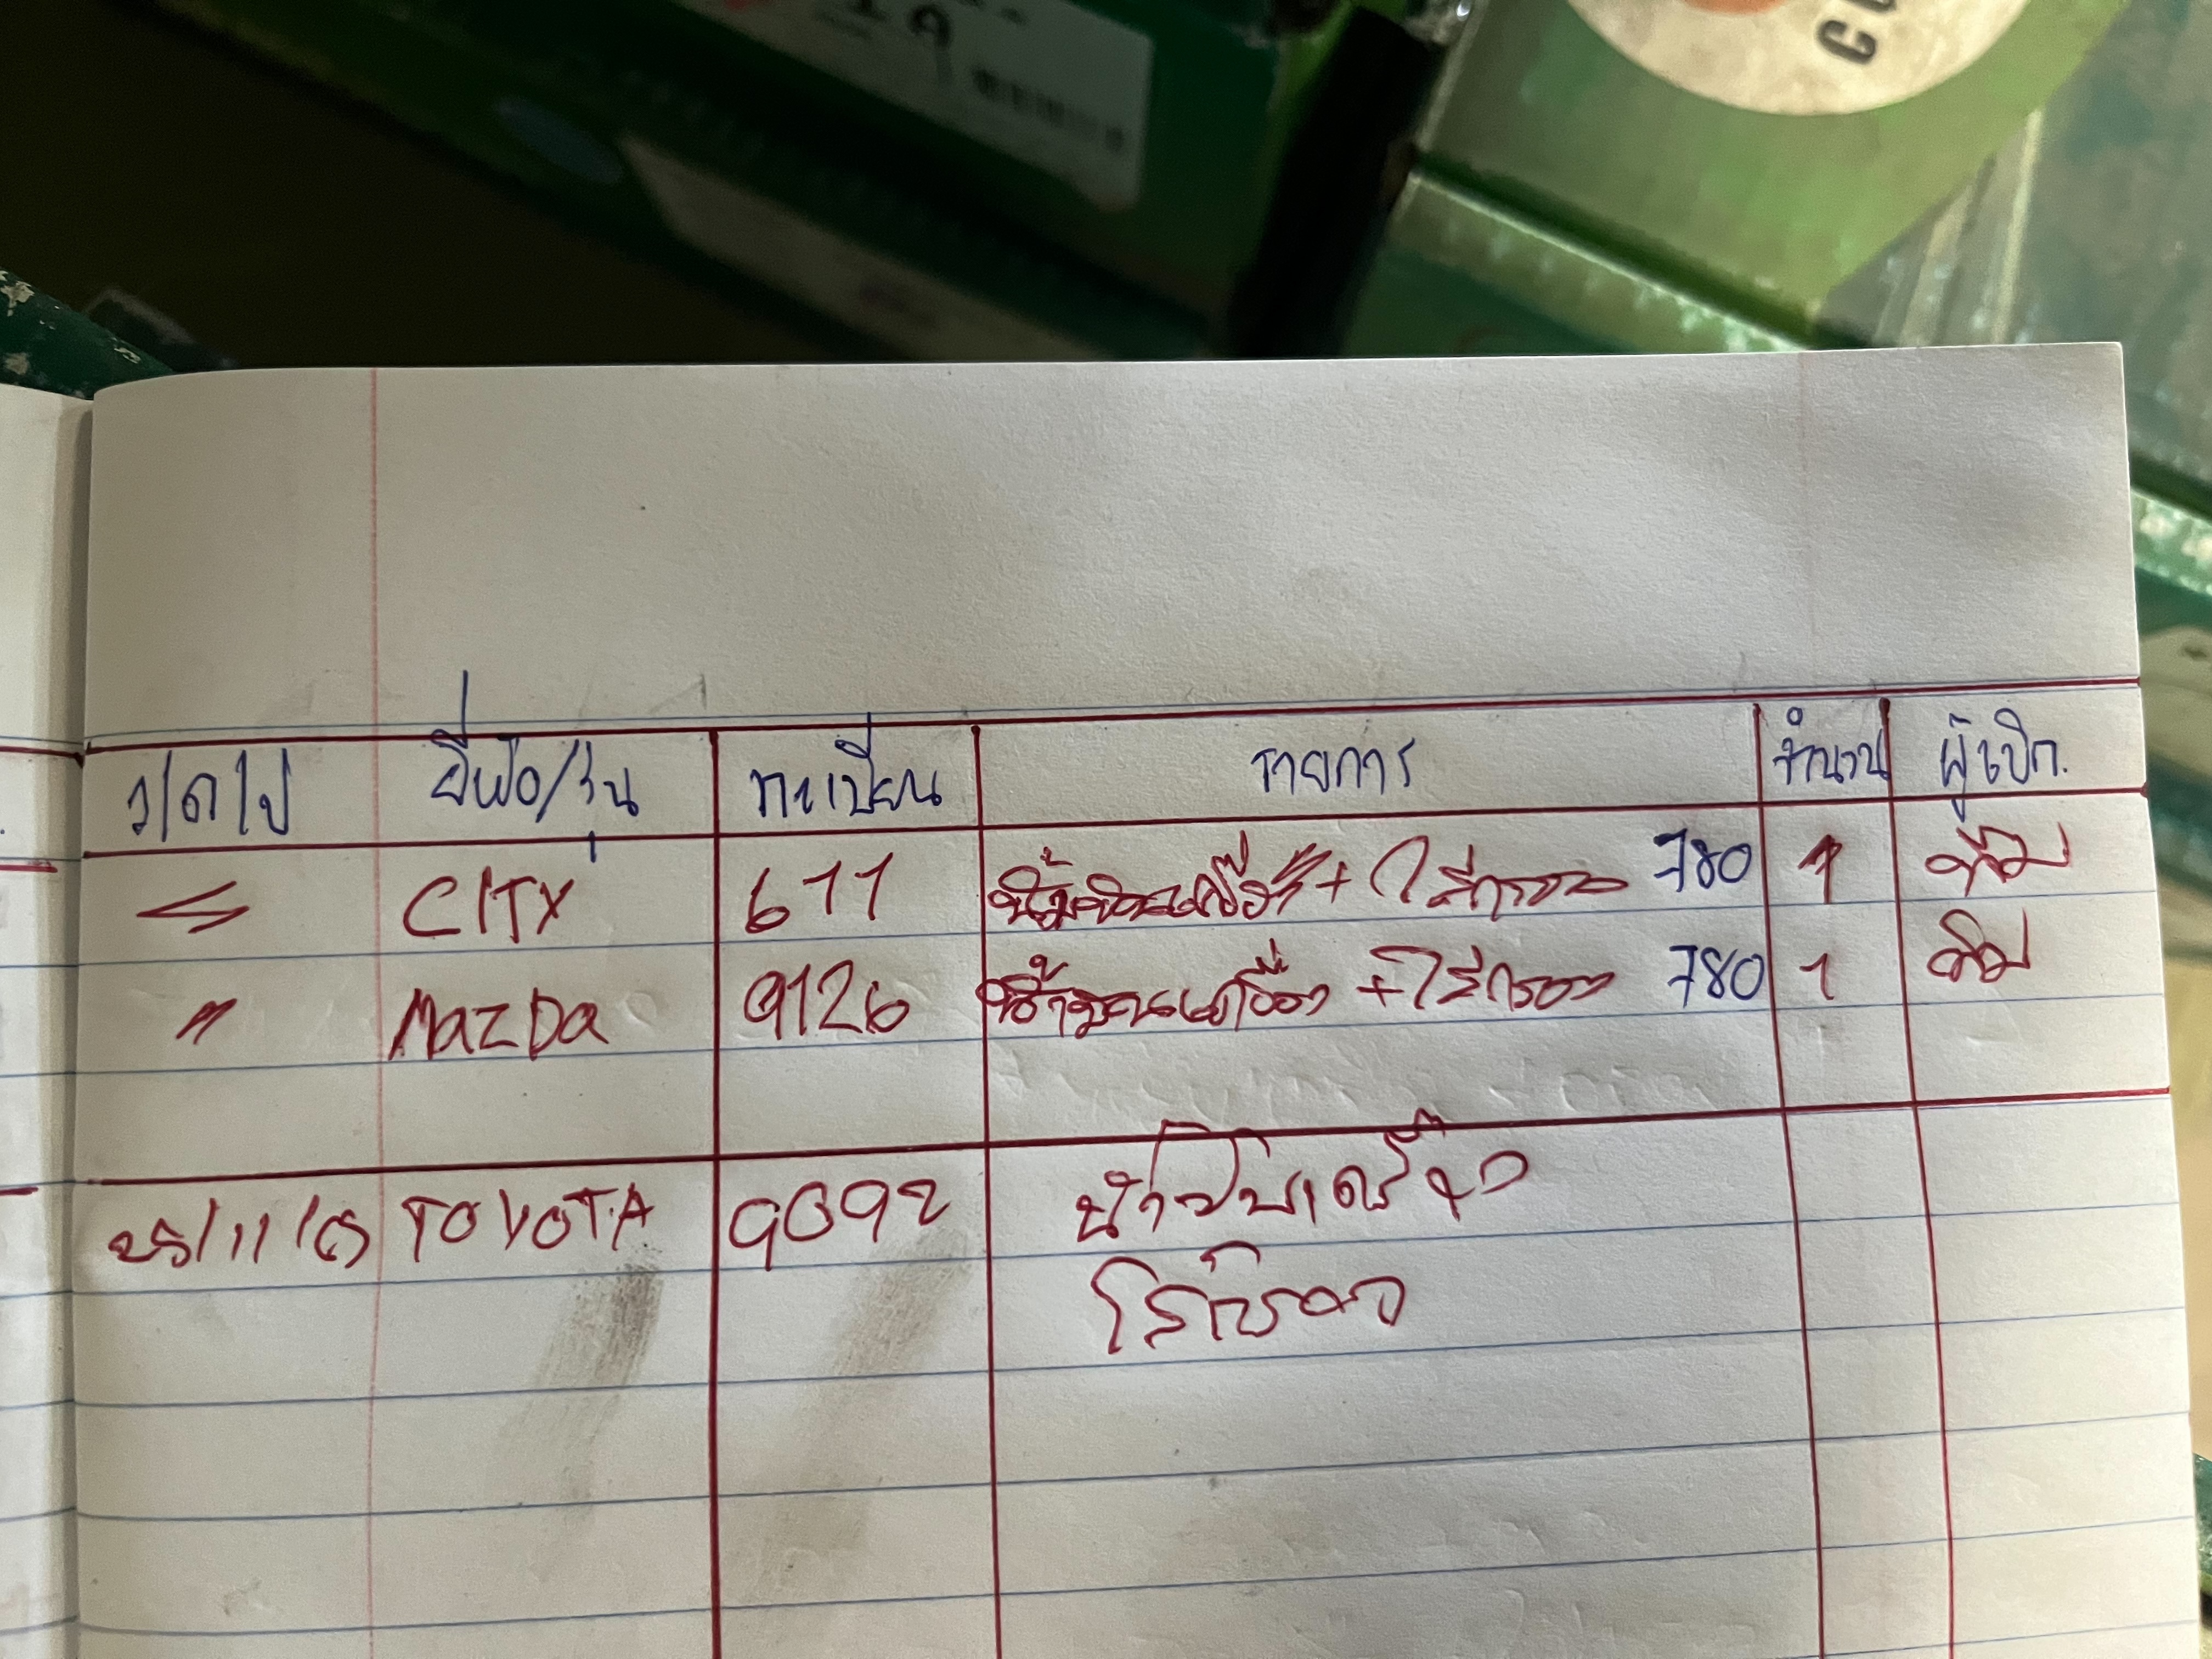 ว/ด/ป ยี่ห้อ/รุ่น ทะเบียน รายการ จำนวน ผู้เบิก.
CITY 611 น้ำมันเครื่อง + ไส้กรอง 780 1
" Mazda 9126 น้ำมันเครื่อง + ไส้กรอง 780 1
25/11/65 TOYOTA 9092 น้ำมันเครื่อง
ไส้กรอง